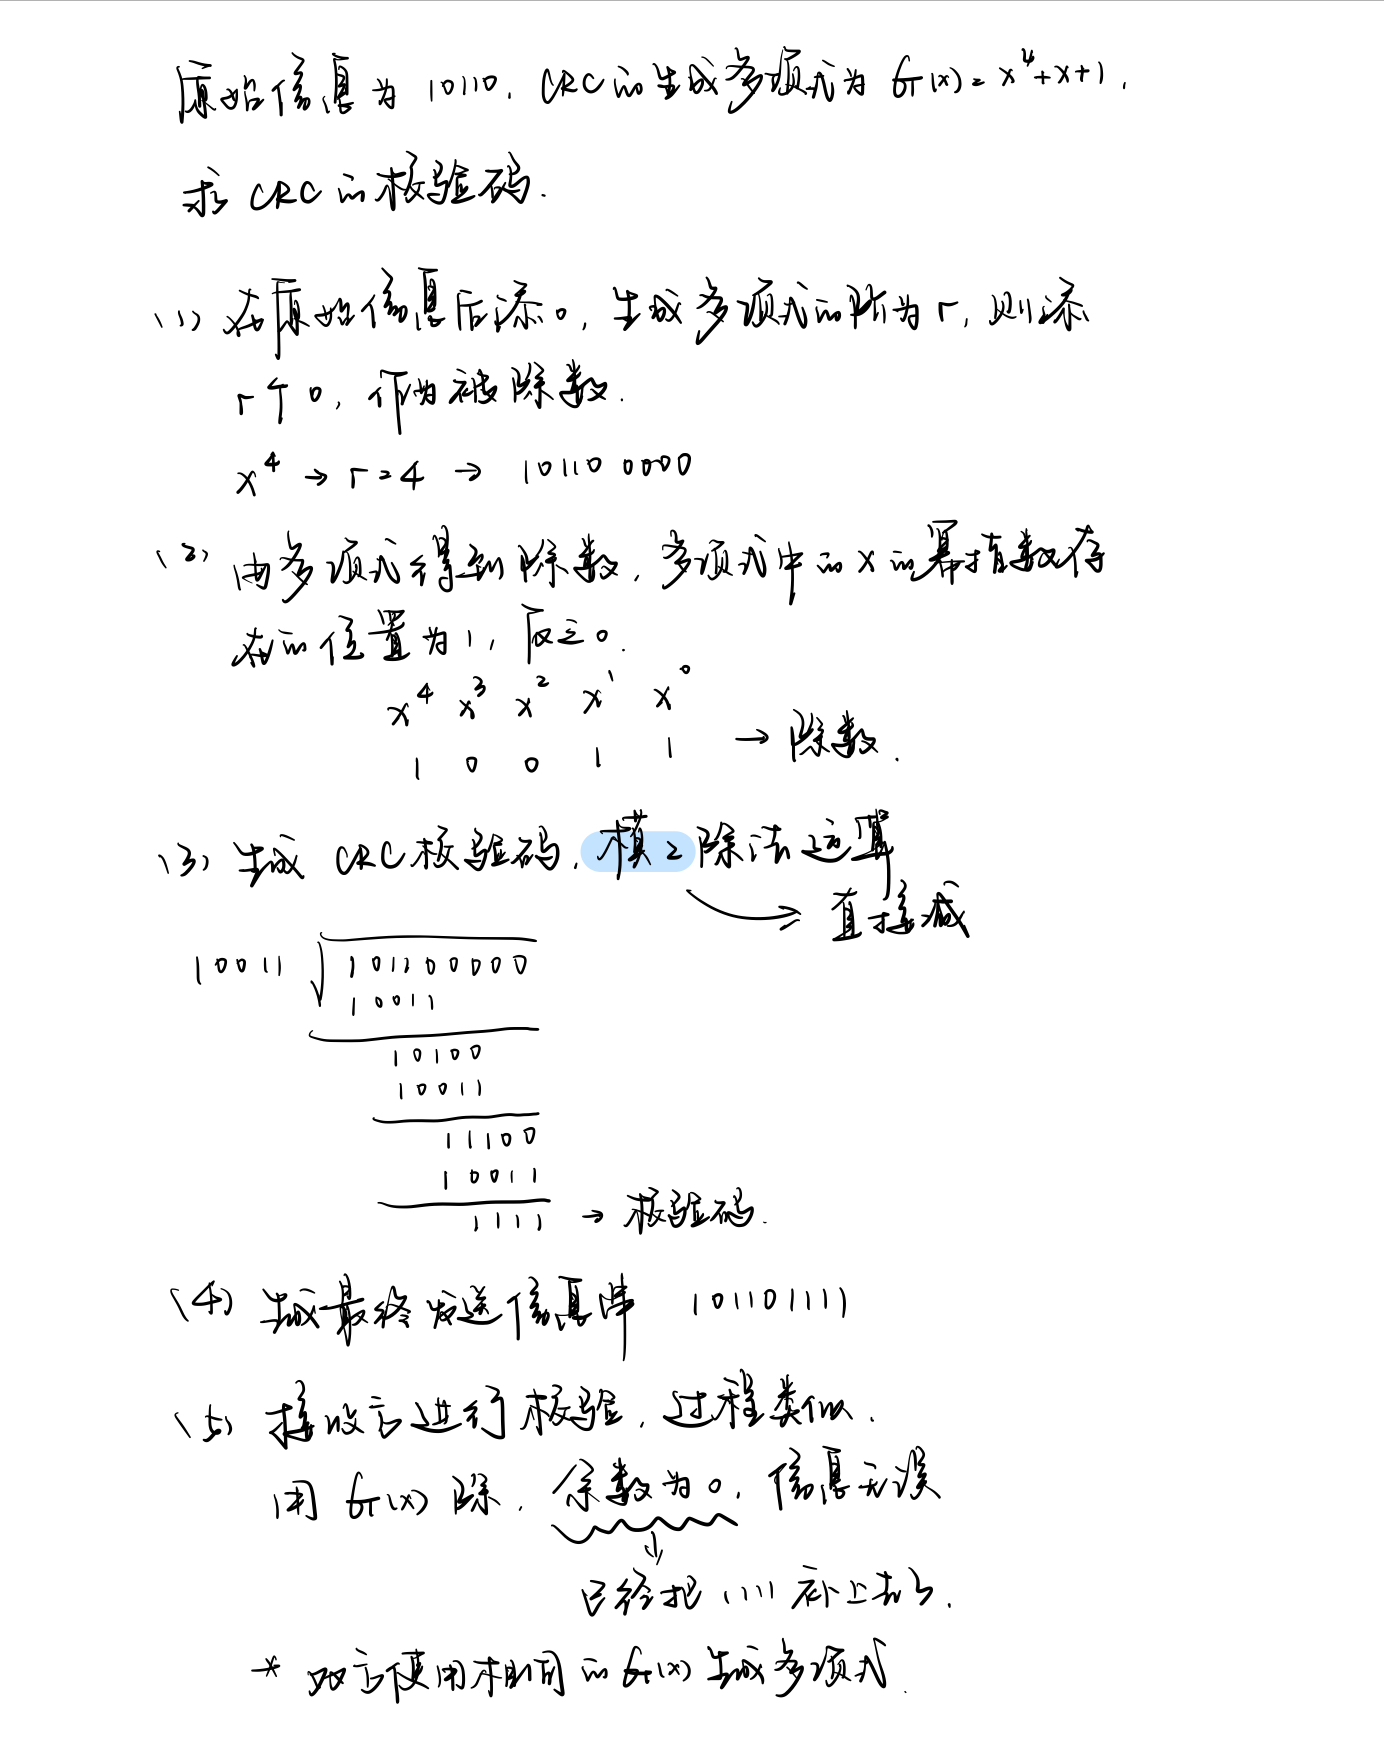 原始信息为 10110. CRC的生成多项式为 G(x)=x⁴+x+1.
求 CRC的校验码.
(1) 在原始信息后添0, 生成多项式的阶为 r, 则添
r个0, 作为被除数.
x⁴ → r=4 → 10110 0000
(2) 由多项式得到除数, 多项式中的x的幂指数存
在的位置为1, 反之0.
x⁴ x³ x² x¹ x⁰
1 0 0 1 1 → 除数.
(3) 生成 CRC校验码, 模2除法运算
直接减
10011 √ 101100000
10011
10100
10011
11100
10011
1111 → 校验码.
(4) 生成最终发送信息串 101101111
(5) 接收方进行校验, 过程类似.
用 G(x) 除, 余数为0, 信息无误
↓
已经把1111补上去了.
* 双方使用相同的G(x)生成多项式.